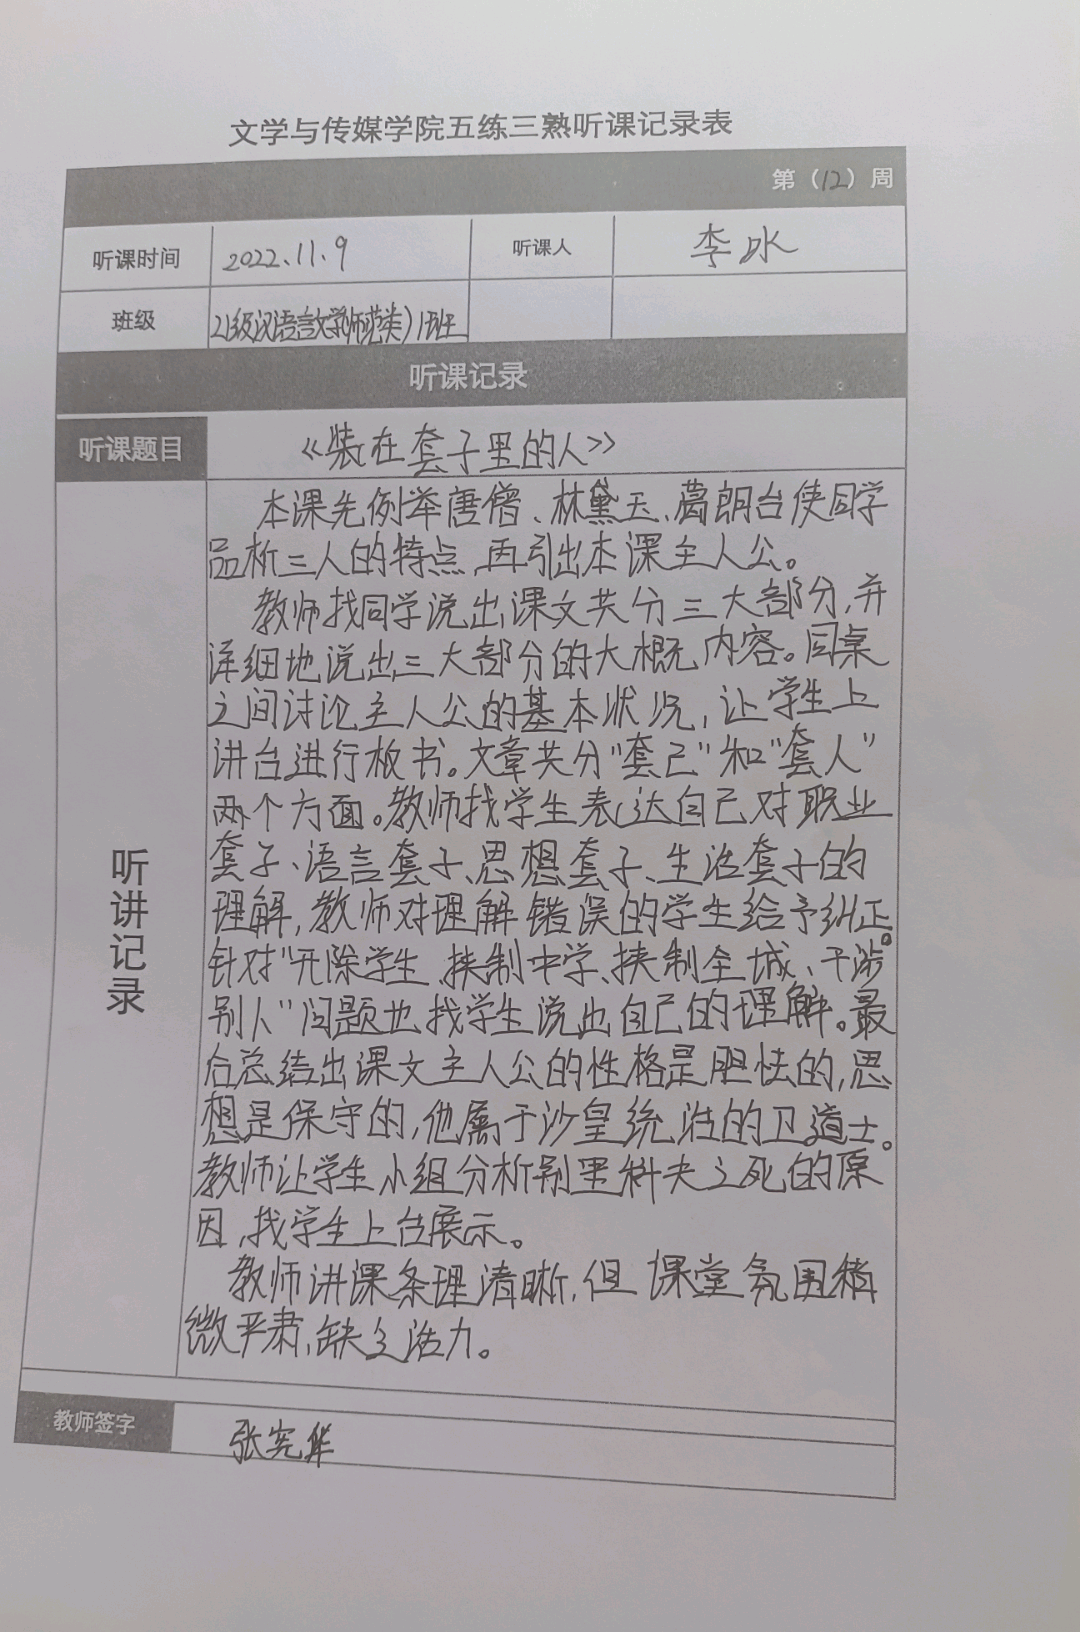 文学与传媒学院五练三熟听课记录表
第（12）周
听课时间 2022.11.9 听课人 李冰
班级 21级汉语言文学(师范类)1班
听课记录
听课题目 《装在套子里的人》
听讲记录
本课先例举唐僧、林黛玉、葛朗台使同学
品析三人的特点,再引出本课主人公。
教师找同学说出课文共分三大部分,并
详细地说出三大部分的大概内容。同桌
之间讨论主人公的基本状况,让学生上
讲台进行板书。文章共分“套己”和“套人”
两个方面。教师找学生表达自己对职业
套子、语言套子、思想套子、生活套子的
理解,教师对理解错误的学生给予纠正。
针对“开除学生、挟制中学、挟制全城、干涉
别人”问题也找学生说出自己的理解。最
后总结出课文主人公的性格是胆怯的,思
想是保守的,他属于沙皇统治的卫道士。
教师让学生小组分析别里科夫之死的原
因,找学生上台展示。
教师讲课条理清晰,但课堂氛围稍
微严肃,缺乏活力。
教师签字 张宪华